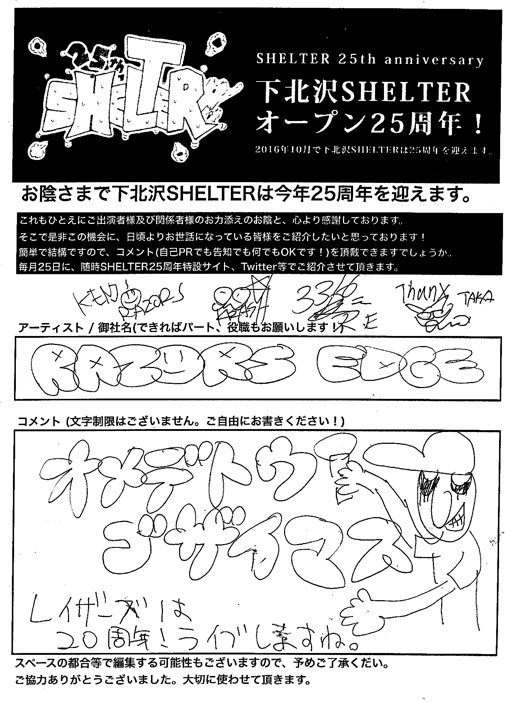 25th
SHELTER
SHELTER 25th anniversary
下北沢SHELTER
オープン25周年！
2016年10月で下北沢SHELTERは25周年を迎えます。
お陰さまで下北沢SHELTERは今年25周年を迎えます。
これもひとえにご出演者様及び関係者様のお力添えのお陰と、心より感謝しております。
そこで是非この機会に、日頃よりお世話になっている皆様をご紹介したいと思っております！
簡単で結構ですので、コメント(自己PRでも告知でも何でもOKです！)を頂戴できますでしょうか。
毎月25日に、随時SHELTER25周年特設サイト、Twitter等でご紹介させて頂きます。
KENJI RAZORS
Thanx TAKA
アーティスト / 御社名(できればパート、役職もお願いします！)
RAZORS EDGE
コメント (文字制限はございません。ご自由にお書きください！)
オメデトウ
ゴザイマス
レイザーズは
20周年！ライブしますね。
スペースの都合等で編集する可能性もございますので、予めご了承くだい。
ご協力ありがとうございました。大切に使わせて頂きます。